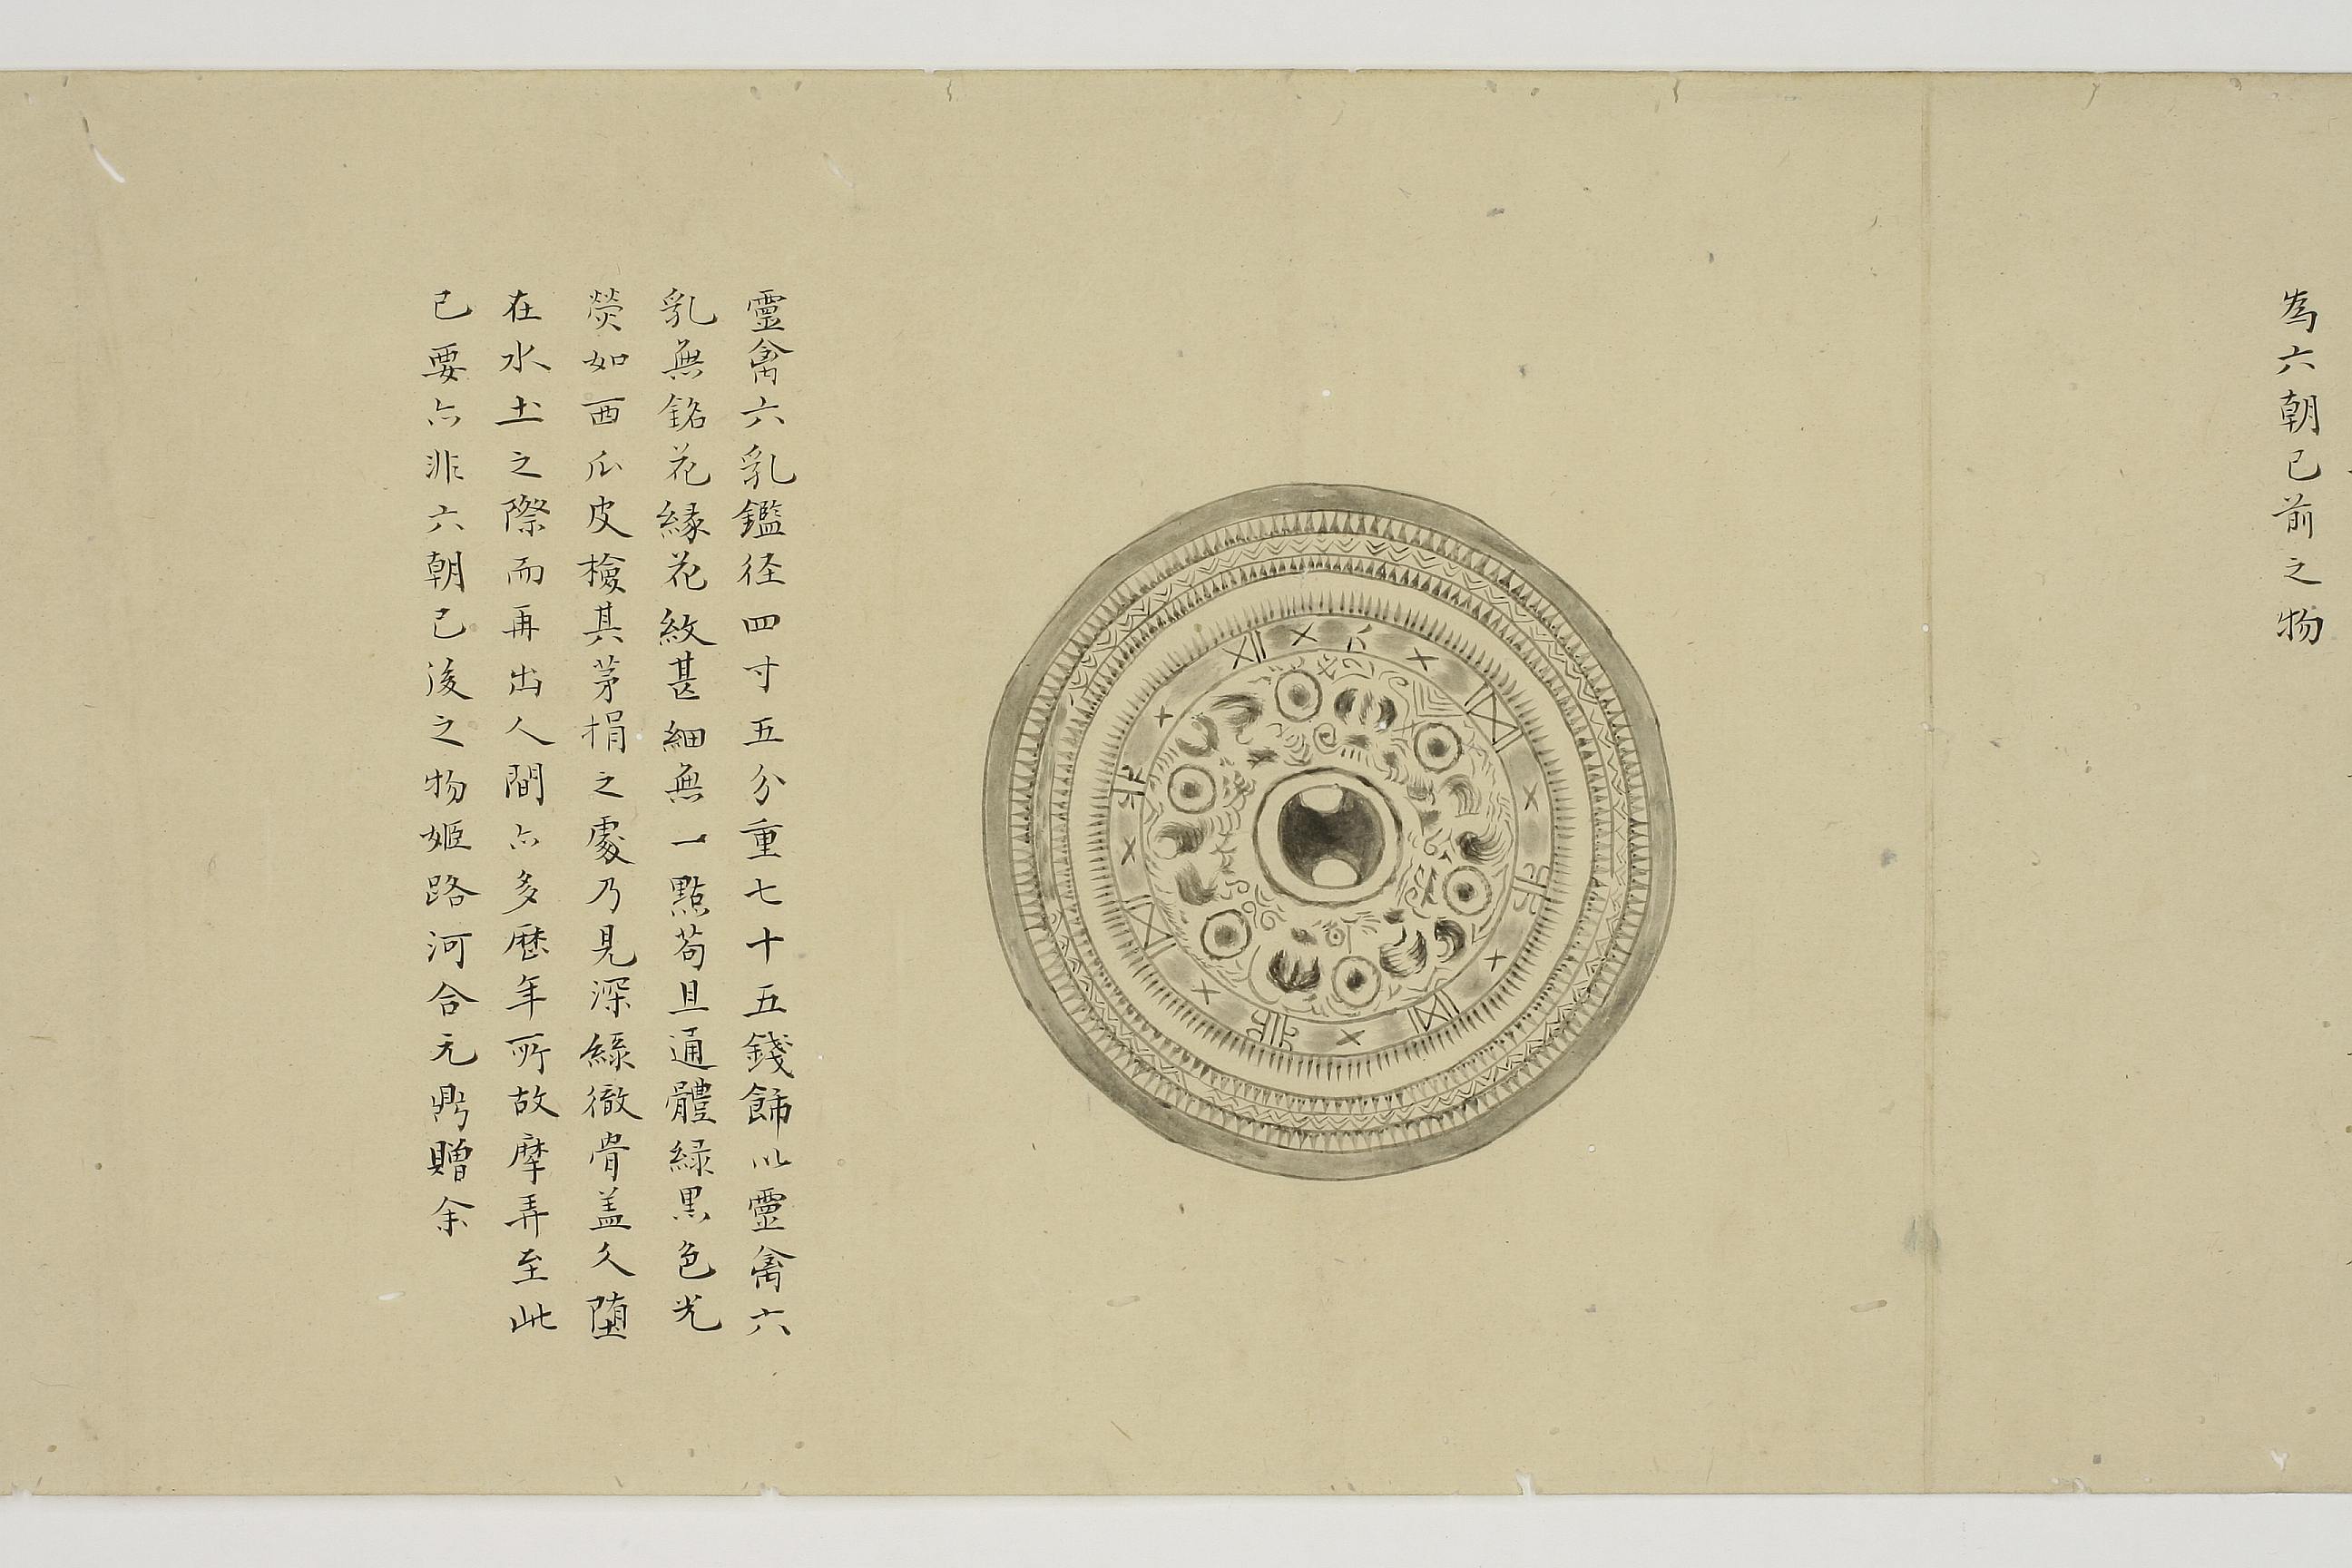 為六朝已前之物
靈禽六乳鑑径四寸五分重七十五錢飾以靈禽六
乳無銘花縁花紋甚細無一點苟且通體緑黒色光
熒如西瓜皮檢其茅捐之處乃見深緑徹骨盖久堕
在水土之際而再出人間亦多歴年所故摩弄至此
已要亦非六朝已後之物姫路河合元鼎贈余